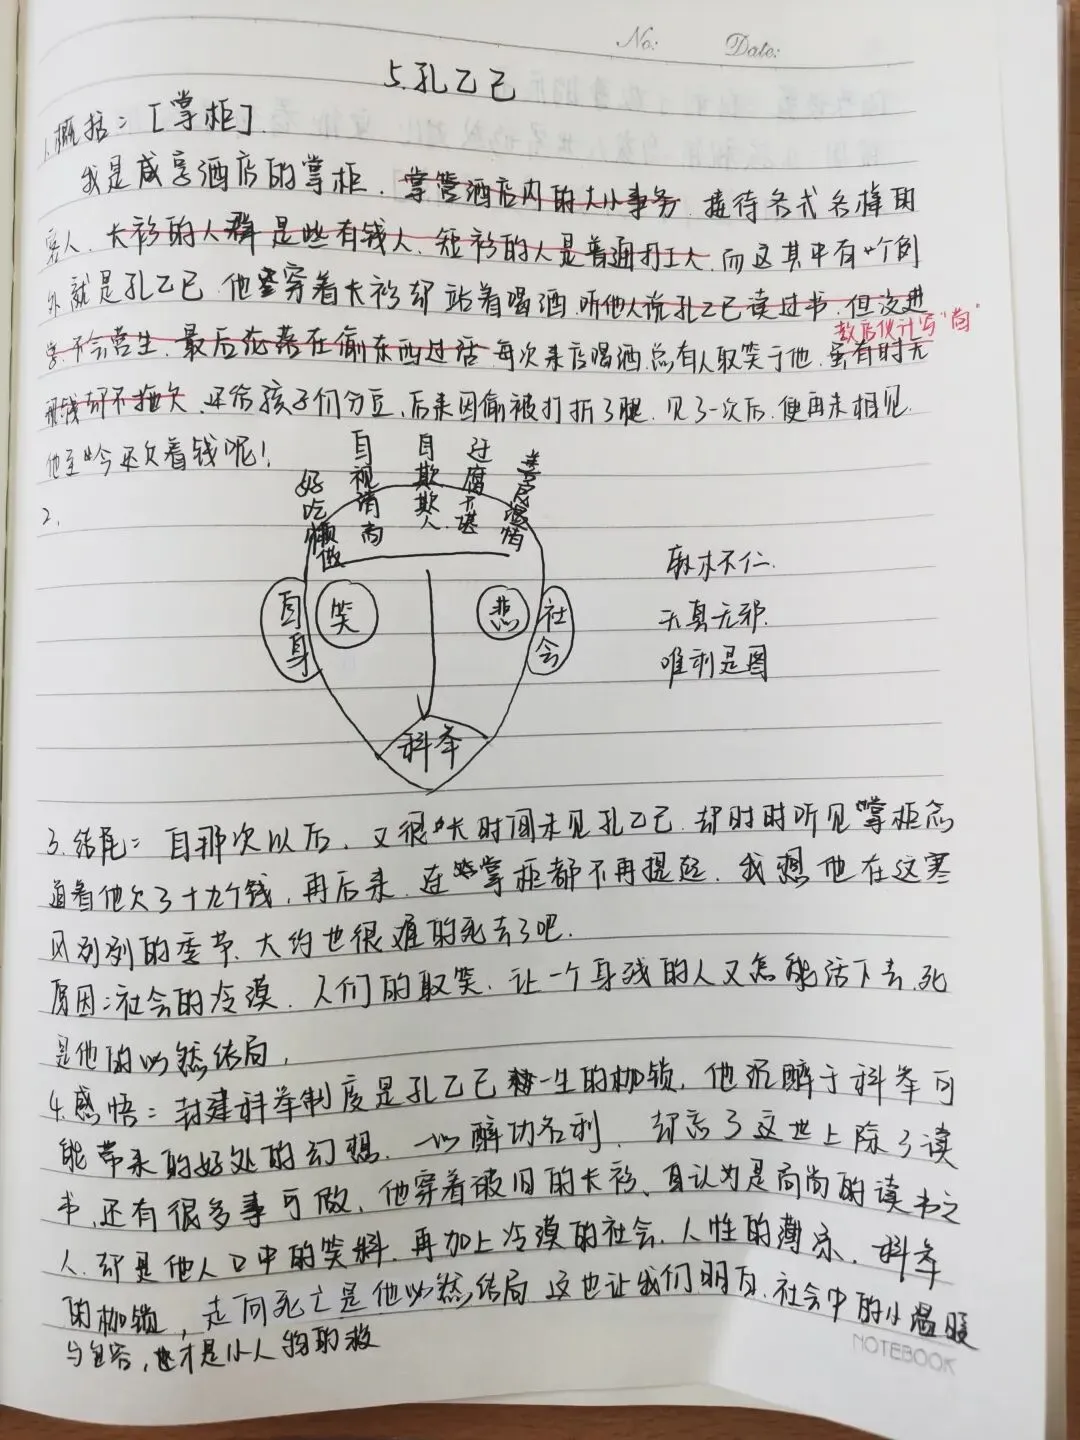 No: Date:
5.孔乙己
1.概括:[掌柜].
我是咸亨酒店的掌柜.掌管酒店内的大小事务.接待各式各样的
客人.长衫的人群是些有钱人.短衫的人是普通打工人.而这其中有个例
外就是孔乙己.他穿着长衫却站着喝酒.听他人说孔乙己读过书.但没进
教店伙计写"茴"
学.不会营生.最后沦落在偷东西过活.每次来店喝酒.总有人取笑于他.虽有时无
现钱却不拖欠.还给孩子们分豆.后来因偷被打折了腿.见了一次后.便再未相见.
他至今还欠着钱呢!
2.
好吃懒做
自视清高
自欺欺人
迂腐不堪
善良温情
自身
笑
悲
社会
科举
麻木不仁.
天真无邪.
唯利是图
3.结尾:自那次以后.又很长时间未见孔乙己.却时时听见掌柜念
道着他欠了十九个钱.再后来.连掌柜都不再提起.我想他在这寒
风列列的季节.大约也很难的死去了吧.
原因:社会的冷漠.人们的取笑.让一个身残的人又怎能活下去.死
是他的必然结局.
4.感悟:封建科举制度是孔乙己一生的枷锁.他沉醉于科举可
能带来的好处的幻想.一心醉功名利.却忘了这世上除了读
书.还有很多事可做.他穿着破旧的长衫.自认为是高尚的读书之
人.却是他人口中的笑料.再加上冷漠的社会.人性的薄凉.科举
的枷锁,走向死亡是他必然结局.这也让我们明白.社会中的小温暖
与包容,也才是小人物的救
NOTEBOOK